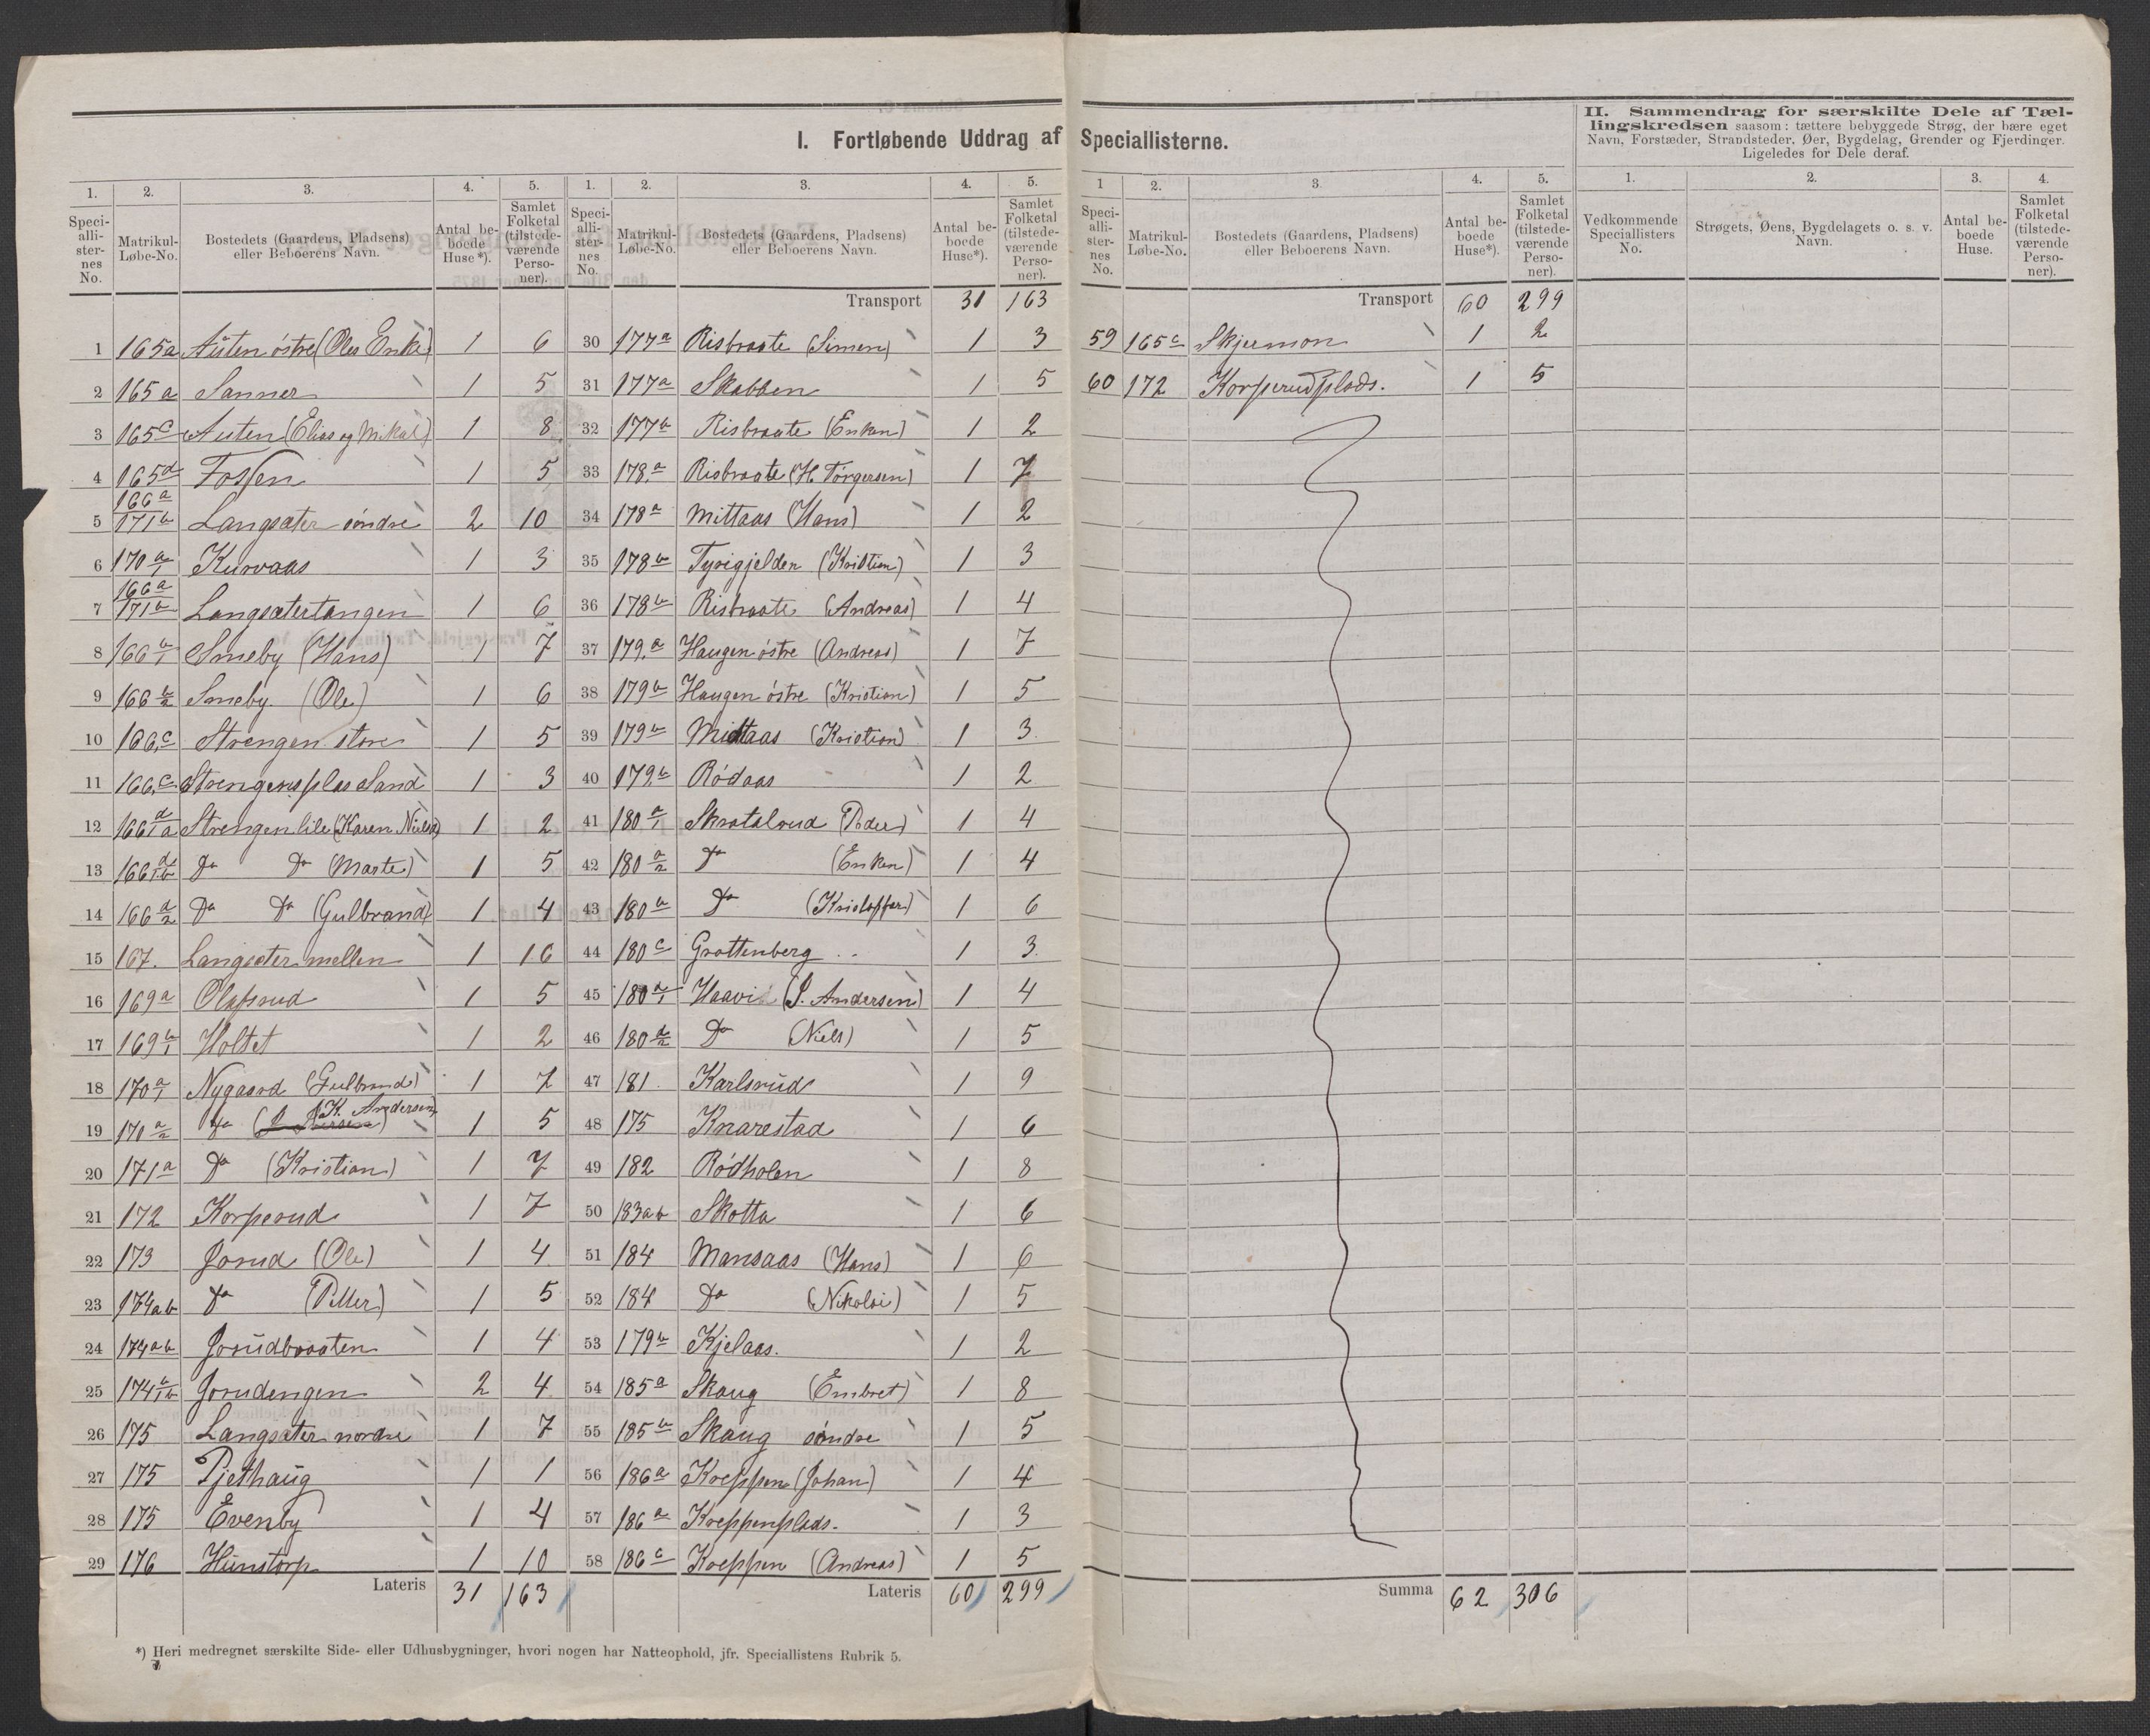 I. Fortløbende Uddrag af Speciallisterne.
II. Sammendrag for særskilte Dele af Tæl-
lingskredsen saasom: tættere bebyggede Strøg, der bære eget
Navn, Forstæder, Strandsteder, Øer, Bygdelag, Grender og Fjerdinger.
Ligeledes for Dele deraf.
1. 2. 3. 4. 5.
Speci-alli-ster-nes No. Matrikul-Løbe-No. Bostedets (Gaardens, Pladsens) eller Beboerens Navn. Antal be-boede Huse*). Samlet Folketal (tilstede-værende Perso-ner).
1 165a Austen östre (Oles Enke) 1 6
2 165a Sanner 1 5
3 165c Austen (Elias og Mikal) 1 8
4 165d Fossen 1 5
5 166a 171b Langsæter söndre 2 10
6 170a/1 Kurvaas 1 3
7 166a 171b Langsætertangen 1 6
8 166b/1 Smeby (Hans) 1 7
9 166b/2 Smeby (Ole) 1 6
10 166c Strengen store 1 5
11 166c Strengensplas Sand 1 3
12 166d/1a Strengen lile (Karen Nielsd) 1 2
13 166d/1b Do Do (Marte) 1 5
14 166d/2 Do Do (Gulbrand) 1 4
15 167. Langsæter mellen 1 16
16 169a Olafsrud 1 5
17 169b/1 Holtet 1 2
18 170a/1 Nygaard (Gulbrand) 1 7
19 170a/2 Do (K. Andersen) 1 5
20 171a Do (Kristian) 1 7
21 172 Korperud 1 7
22 173 Jorud (Ole) 1 4
23 174ab Do (Petter) 1 5
24 174ab Jorudbraaten 1 4
25 174b/1b Jorudengen 2 4
26 175 Langsæter nordre 1 7
27 175 Pjethaug 1 1
28 175 Evenby 1 4
29 176 Hunstorp 1 10
Lateris 31 163
1. 2. 3. 4. 5.
Speci-alli-ster-nes No. Matrikul-Løbe-No. Bostedets (Gaardens, Pladsens) eller Beboerens Navn. Antal be-boede Huse*). Samlet Folketal (tilstede-værende Perso-ner).
Transport 31 163
30 177a Risbraate (Simen) 1 3
31 177a Skabben 1 5
32 177b Risbraate (Enken) 1 2
33 178a Risbraate (H. Törgersen) 1 7
34 178a Mittaas (Hans) 1 2
35 178b Tyrigjelden (Kristian) 1 3
36 178b Risbraate (Andreas) 1 4
37 179.a Haugen östre (Andreas) 1 7
38 179b Haugen östre (Kristian) 1 5
39 179b Midtaas (Kristian) 1 3
40 179b Rödaas 1 2
41 180a/1 Skratalrud (Peder) 1 4
42 180a/2 Do (Enken) 1 4
43 180a Do (Kristoffer) 1 6
44 180c Grattenberg 1 3
45 180d/1 Haavi (J. Andersen) 1 4
46 180d/2 Do (Niels) 1 5
47 181 Karlsrud 1 9
48 175 Knarestad 1 6
49 182 Rödholen 1 8
50 183ab Skotta 1 6
51 184 Mansaas (Hans) 1 6
52 184 Do (Nikolai) 1 5
53 179b Kjelaas. 1 2
54 185a Skaug (Embret) 1 8
55 185b Skaug söndre 1 5
56 186a Kreppen (Johan) 1 4
57 186a Kreppenplads. 1 3
58 186c Kreppen (Andreas) 1 5
Lateris 60 299
*) Heri medregnet særskilte Side- eller Udhusbygninger, hvori nogen har Natteophold, jfr. Speciallistens Rubrik 5.
1 2. 3. 4. 5.
Speci-alli-ster-nes No. Matrikul-Løbe-No. Bostedets (Gaardens, Pladsens) eller Beboerens Navn. Antal be-boede Huse*). Samlet Folketal (tilstede-værende Perso-ner).
Transport 60 299
59 165c Skjermon 1 2
60 172 Korperudplads. 1 5
Summa 62 306
1. 2. 3. 4.
Vedkommende Speciallisters No. Strøgets, Øens, Bygdelagets o. s. v. Navn. Antal be-boede Huse. Samlet Folketal (tilstede-værende Perso-ner).